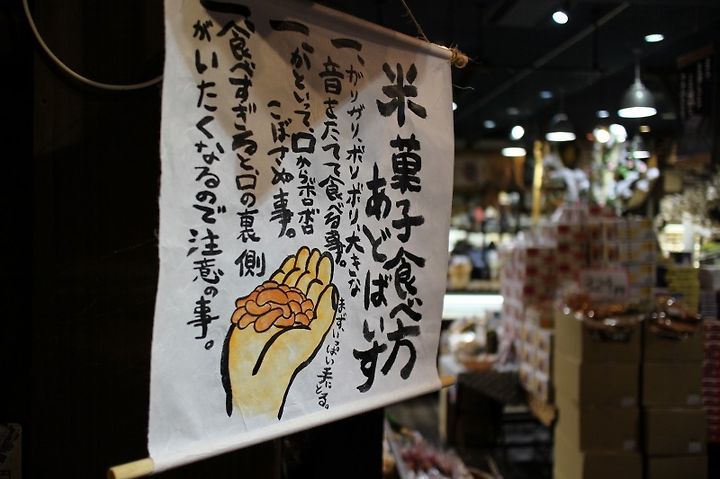 米菓子食べ方
あどばいす
一、ガリガリ、ボリボリ、大きな
音をたてて食べる事。
一、かといって、口からボロボロ
こぼさぬ事。
一、食べすぎると、口の裏側
がいたくなるので注意の事。
まず、いっぱい手にとる。